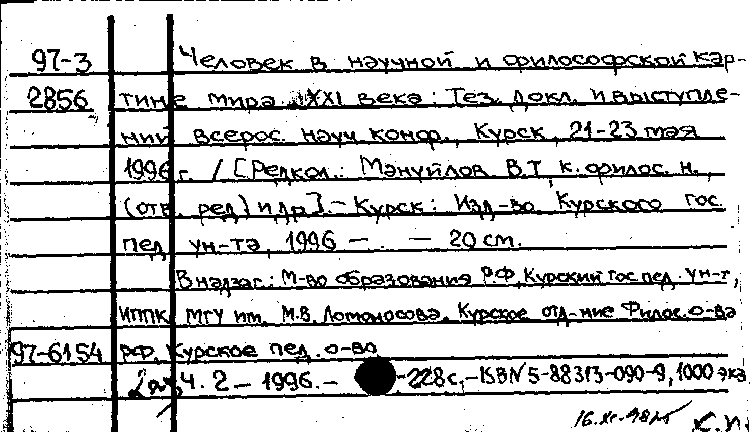 97-3 Человек в научной и философской кар-
2856 тине мира XXI века: Тез. докл. и выступле-
ний всерос. науч. конф., Курск, 21-23 мая
1996 г. / [Редкол.: Мануйлов В.Т., к. филос. н.,
(отв. ред) и др]. - Курск: Изд-во Курского гос.
пед. ун-та, 1996 - . - 20 см.
В надзаг.: М-во образования Р.Ф, Курский гос. пед. ун-т,
ИППК МГУ им. М.В. Ломоносова, Курское отд-ние Филос. о-ва
97-6154 РФ, Курское пед. о-во
Ч. 2. - 1996. - -228 с, - ISBN 5-88313-090-9, 1000 экз
16.XI.98